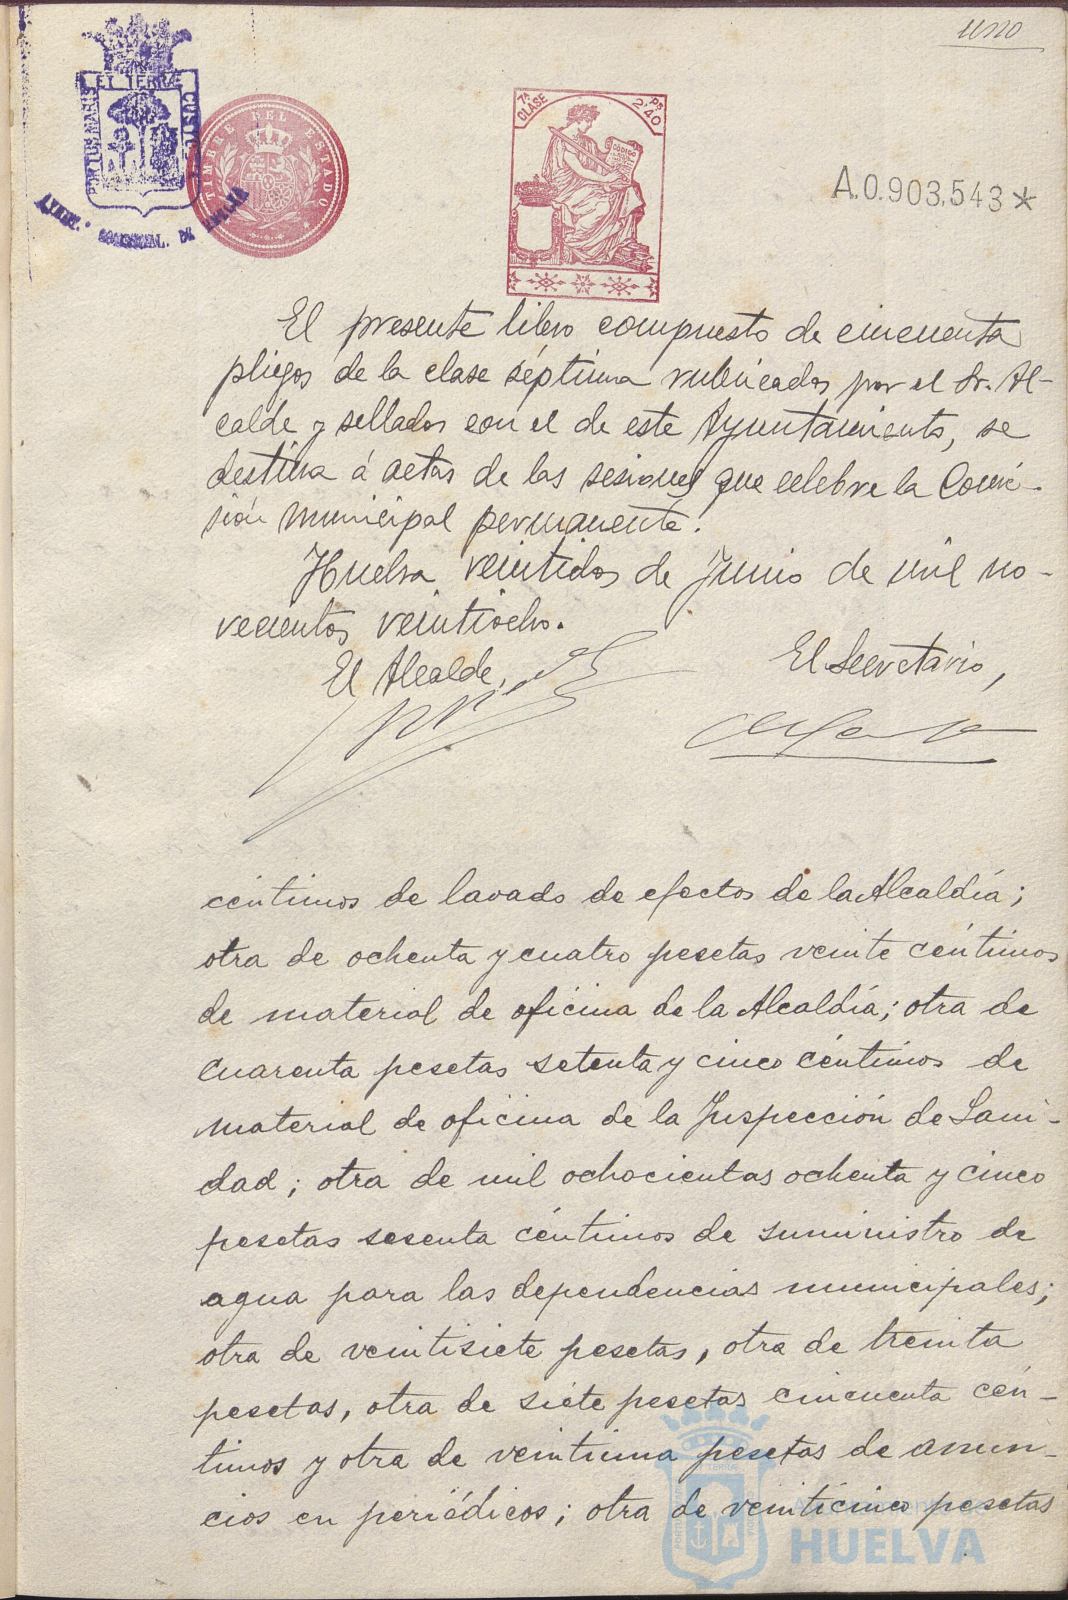 uno
PORTUS MARIS ET TERRÆ CUSTODIA
AYUNT.º CONSTITUCIONAL. DE HUELVA
TIMBRE DEL ESTADO
7ª CLASE
Ps 2'40
CODIGO
A.0.903,543*
El presente libro compuesto de cincuenta
pliegos de la clase séptima rubricados por el Sr. Al-
calde y sellados con el de este Ayuntamiento, se
destina á actas de las sesiones que celebre la Comi-
sión municipal permanente.
Huelva veintidos de Junio de mil no-
vecientos veintiocho.
El Alcalde,
El Secretario,
céntimos de lavado de efectos de la Alcaldía;
otra de ochenta y cuatro pesetas veinte céntimos
de material de oficina de la Alcaldía; otra de
cuarenta pesetas setenta y cinco céntimos de
material de oficina de la Inspección de Sani-
dad; otra de mil ochocientas ochenta y cinco
pesetas sesenta céntimos de suministro de
agua para las dependencias municipales;
otra de veintisiete pesetas, otra de treinta
pesetas, otra de siete pesetas cincuenta cén-
timos y otra de veintiuna pesetas de anun-
cios en periódicos; otra de veinticinco pesetas
Ayuntamiento de
HUELVA